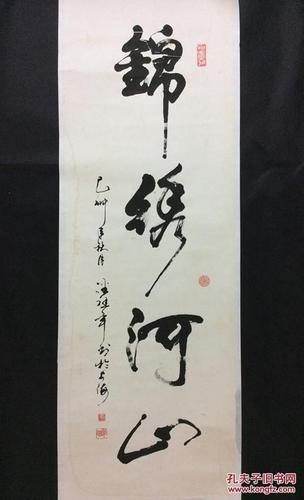 錦绣河山
己卯年秋月
书於上海
孔夫子旧书网
www.kongfz.com